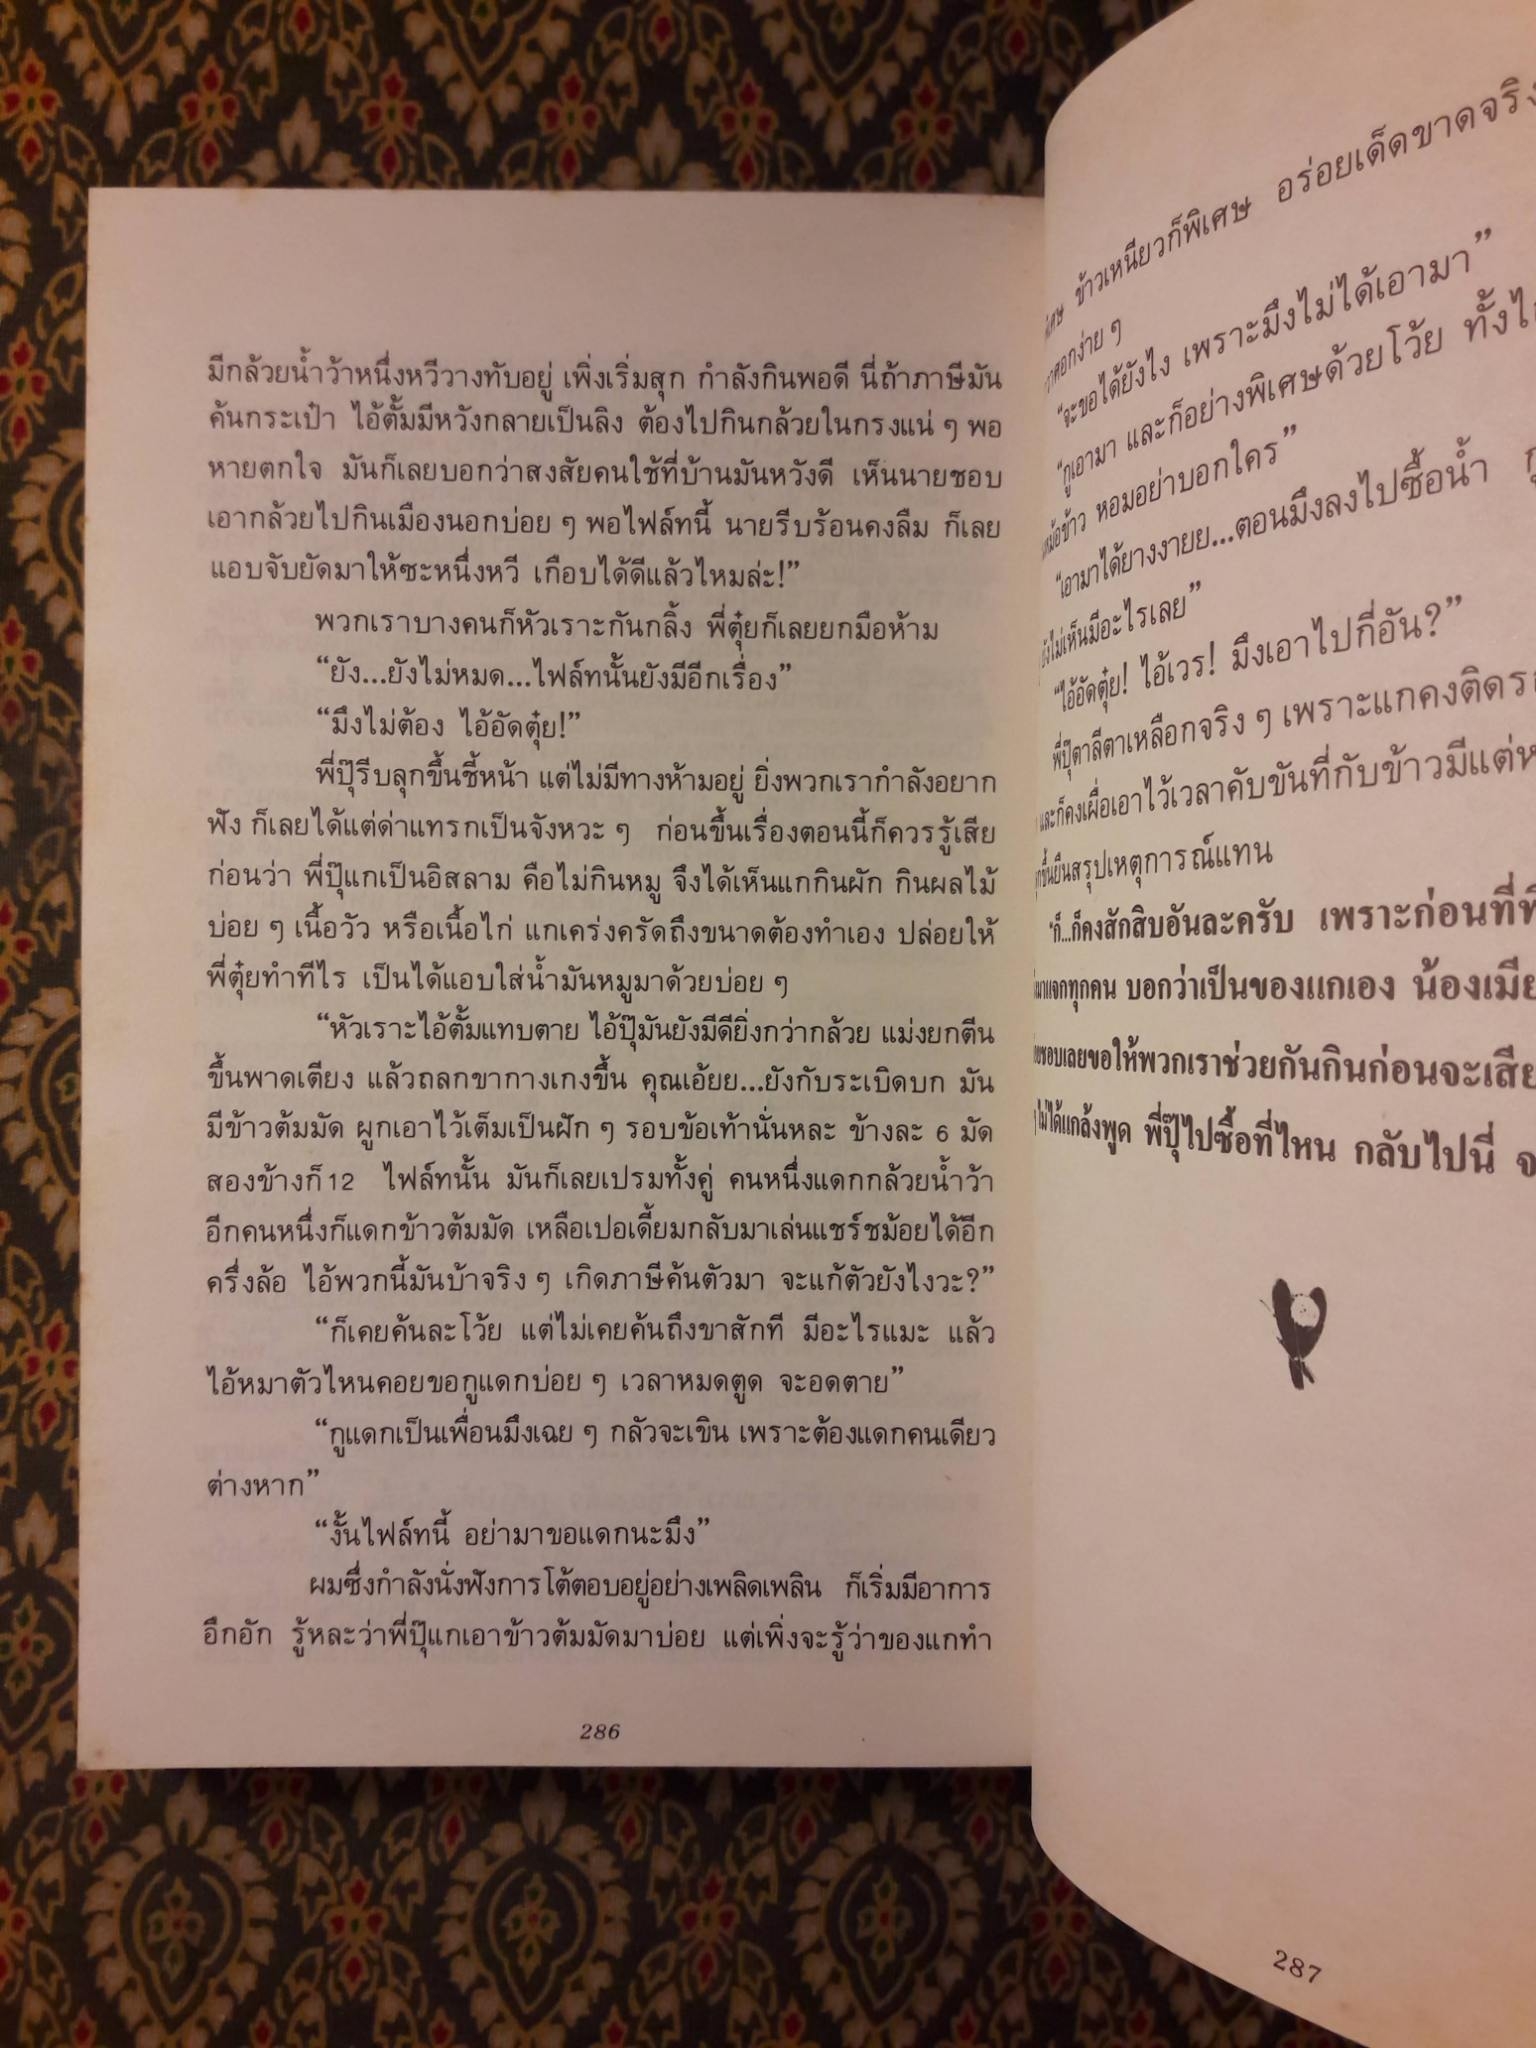 มีกล้วยน้ำว้าหนึ่งหวีวางทับอยู่ เพิ่งเริ่มสุก กำลังกินพอดี นี่ถ้าภาษีมัน
ค้นกระเป๋า ไอ้ตั้มมีหวังกลายเป็นลิง ต้องไปกินกล้วยในกรงแน่ ๆ พอ
หายตกใจ มันก็เลยบอกว่าสงสัยคนใช้ที่บ้านมันหวังดี เห็นนายชอบ
เอากล้วยไปกินเมืองนอกบ่อย ๆ พอไฟล์ทนี้ นายรีบร้อนคงลืม ก็เลย
แอบจับยัดมาให้ซะหนึ่งหวี เกือบได้ดีแล้วไหมล่ะ!”
พวกเราบางคนก็หัวเราะกันกลิ้ง พี่ตุ๋ยก็เลยยกมือห้าม
“ยัง...ยังไม่หมด...ไฟล์ทนั้นยังมีอีกเรื่อง”
“มึงไม่ต้อง ไอ้อัดตุ๋ย!”
พี่ปุ๊รีบลุกขึ้นชี้หน้า แต่ไม่มีทางห้ามอยู่ ยิ่งพวกเรากำลังอยาก
ฟัง ก็เลยได้แต่ด่าแทรกเป็นจังหวะ ๆ ก่อนขึ้นเรื่องตอนนี้ก็ควรรู้เสีย
ก่อนว่า พี่ปุ๊แกเป็นอิสลาม คือไม่กินหมู จึงได้เห็นแกกินผัก กินผลไม้
บ่อย ๆ เนื้อวัว หรือเนื้อไก่ แกเคร่งครัดถึงขนาดต้องทำเอง ปล่อยให้
พี่ตุ๋ยทำทีไร เป็นได้แอบใส่น้ำมันหมูมาด้วยบ่อย ๆ
“หัวเราะไอ้ตั้มแทบตาย ไอ้ปุ๊มันยังมีดียิ่งกว่ากล้วย แม่งยกตีน
ขึ้นพาดเตียง แล้วถลกขากางเกงขึ้น คุณเอ้ยย...ยังกับระเบิดบก มัน
มีข้าวต้มมัด ผูกเอาไว้เต็มเป็นฝัก ๆ รอบข้อเท้านั่นหละ ข้างละ 6 มัด
สองข้างก็ 12 ไฟล์ทนั้น มันก็เลยเปรมทั้งคู่ คนหนึ่งแดกกล้วยน้ำว้า
อีกคนหนึ่งก็แดกข้าวต้มมัด เหลือเปอเดี้ยมกลับมาเล่นแชร์ชม้อยได้อีก
ครึ่งล้อ ไอ้พวกนี้มันบ้าจริง ๆ เกิดภาษีค้นตัวมา จะแก้ตัวยังไงวะ?”
“ก็เคยค้นละโว้ย แต่ไม่เคยค้นถึงขาสักที มีอะไรแมะ แล้ว
ไอ้หมาตัวไหนคอยขอกูแดกบ่อย ๆ เวลาหมดตูด จะอดตาย”
“กูแดกเป็นเพื่อนมึงเฉย ๆ กลัวจะเขิน เพราะต้องแดกคนเดียว
ต่างหาก”
“งั้นไฟล์ทนี้ อย่ามาขอแดกนะมึง”
ผมซึ่งกำลังนั่งฟังการโต้ตอบอยู่อย่างเพลิดเพลิน ก็เริ่มมีอาการ
อึกอัก รู้หละว่าพี่ปุ๊แกเอาข้าวต้มมัดมาบ่อย แต่เพิ่งจะรู้ว่าของแกทำ
286
ข้าวเหนียวก็พิเศษ อร่อยเด็ดขาดจริง
ง่าย ๆ
“จะขอได้ยังไง เพราะมึงไม่ได้เอามา”
“กูเอามา และก็อย่างพิเศษด้วยโว้ย
หม้อข้าว หอมอย่าบอกใคร”
“เอามาได้ยางงายย...ตอนมึงลงไปซื้อน้ำ
ยังไม่เห็นมีอะไรเลย”
“ไอ้อัดตุ๋ย! ไอ้เวร! มึงเอาไปกี่อัน?”
พี่ปุ๊ตาลีตาเหลือกจริง ๆ เพราะแกคงติด
และก็คงเผื่อเอาไว้เวลาคับขันที่กับข้าวมีแต่
ขึ้นยืนสรุปเหตุการณ์แทน
“ก็...ก็คงสักสิบอันละครับ เพราะก่อนที่
มาแจกทุกคน บอกว่าเป็นของแกเอง น้องเมีย
ชอบเลยขอให้พวกเราช่วยกันกินก่อนจะเสีย
ไม่ได้แกล้งพูด พี่ปุ๊ไปซื้อที่ไหน กลับไปนี่
287